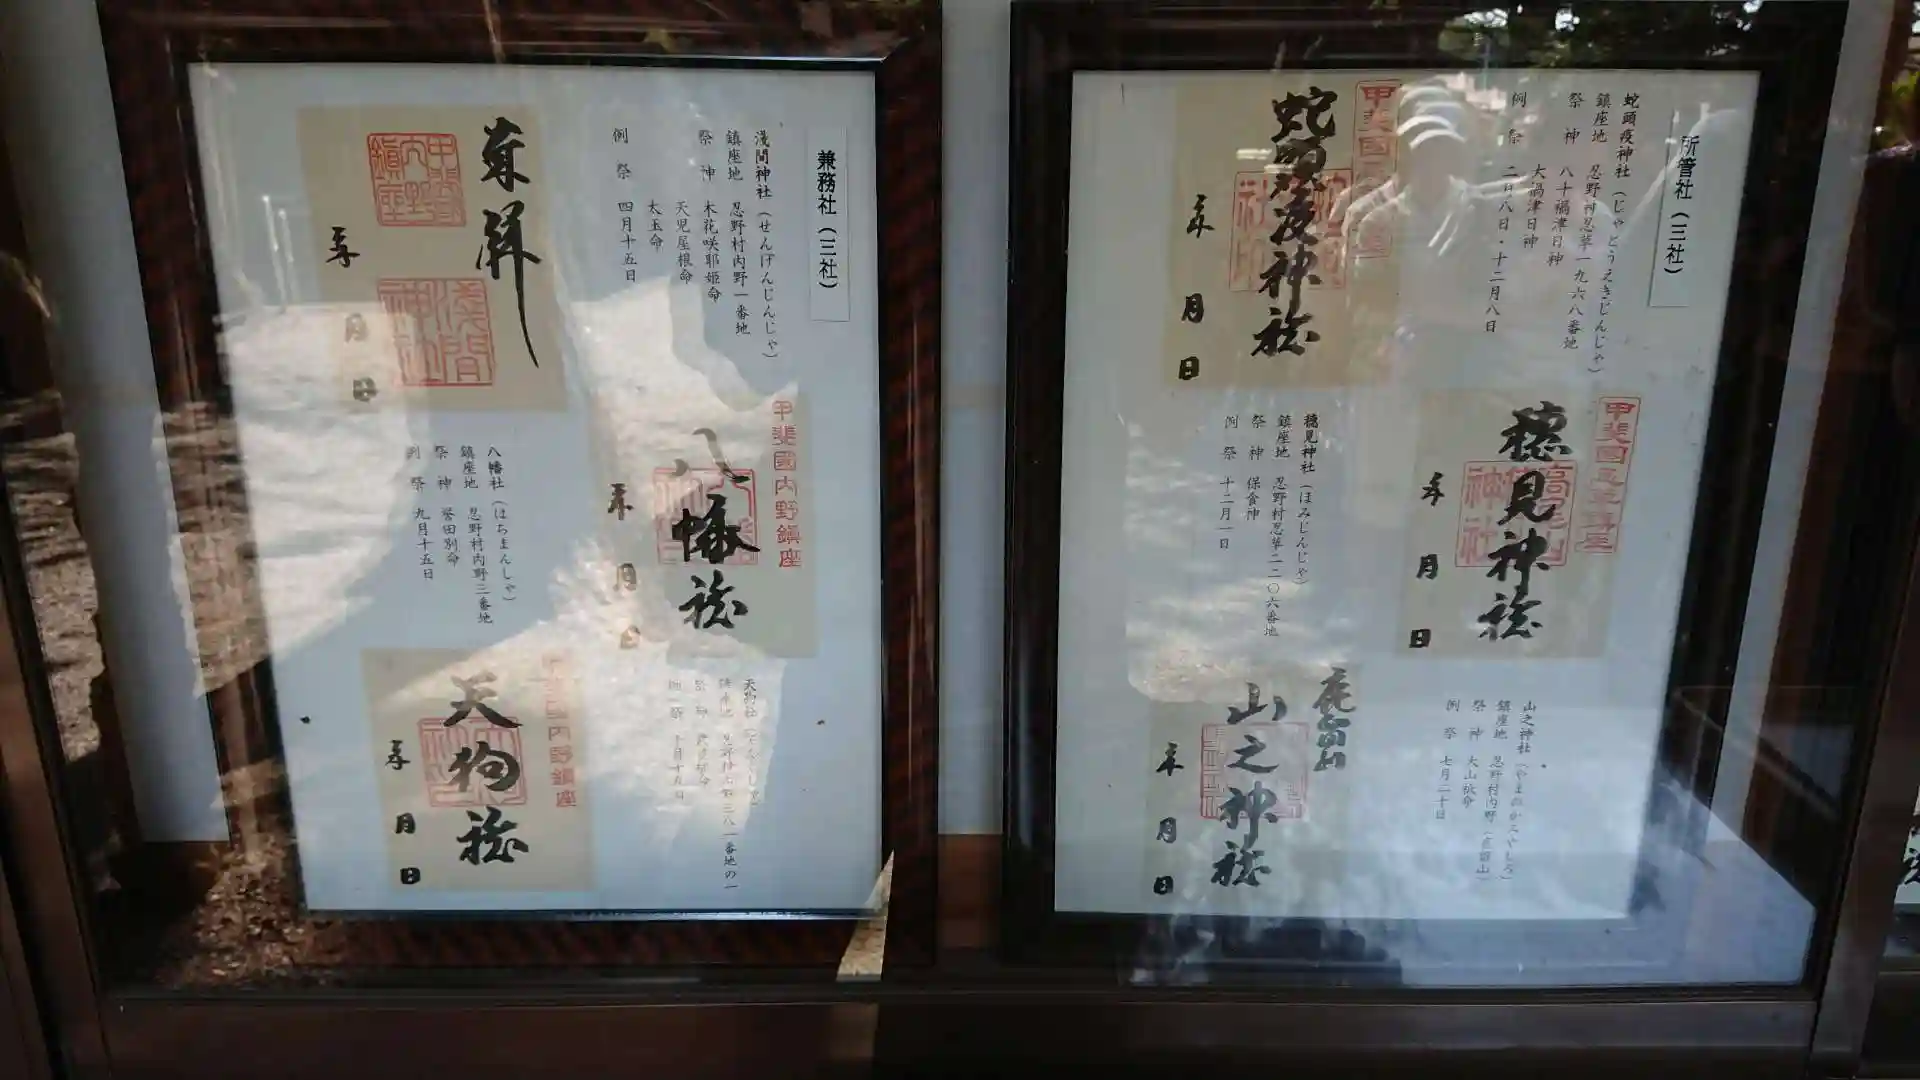 所管社（三社）
蛇頭疫神社（じゃとうえきじんじゃ）
鎮座地　忍野村忍草一九六八番地
祭　神　八十禍津日神
大禍津日神
例　祭　二月八日・十二月八日
蛇頭疫神社
年　月　日
甲斐國忍草鎮座
穂見神社
年　月　日
穂見神社（ほみじんじゃ）
鎮座地　忍野村忍草二二〇六番地
祭　神　保食神
例　祭　十二月一日
山之神社（やまのかみやしろ）
鎮座地　忍野村内野
祭　神　大山祇命
例　祭　七月二十日
山之神社
年　月　日
兼務社（三社）
淺間神社（せんげんじんじゃ）
鎮座地　忍野村内野一番地
祭　神　木花咲耶姫命
天児屋根命
太玉命
例　祭　四月十五日
奉拝
甲斐國内野鎮座
淺間神社
年　月　日
甲斐國内野鎮座
八幡社
年　月　日
八幡社（はちまんしゃ）
鎮座地　忍野村内野三番地
祭　神　誉田別命
例　祭　九月十五日
天狗社
鎮座地　忍野村内野三八一番地の一
祭　神
例　祭
内野鎮座
天狗社
年　月　日